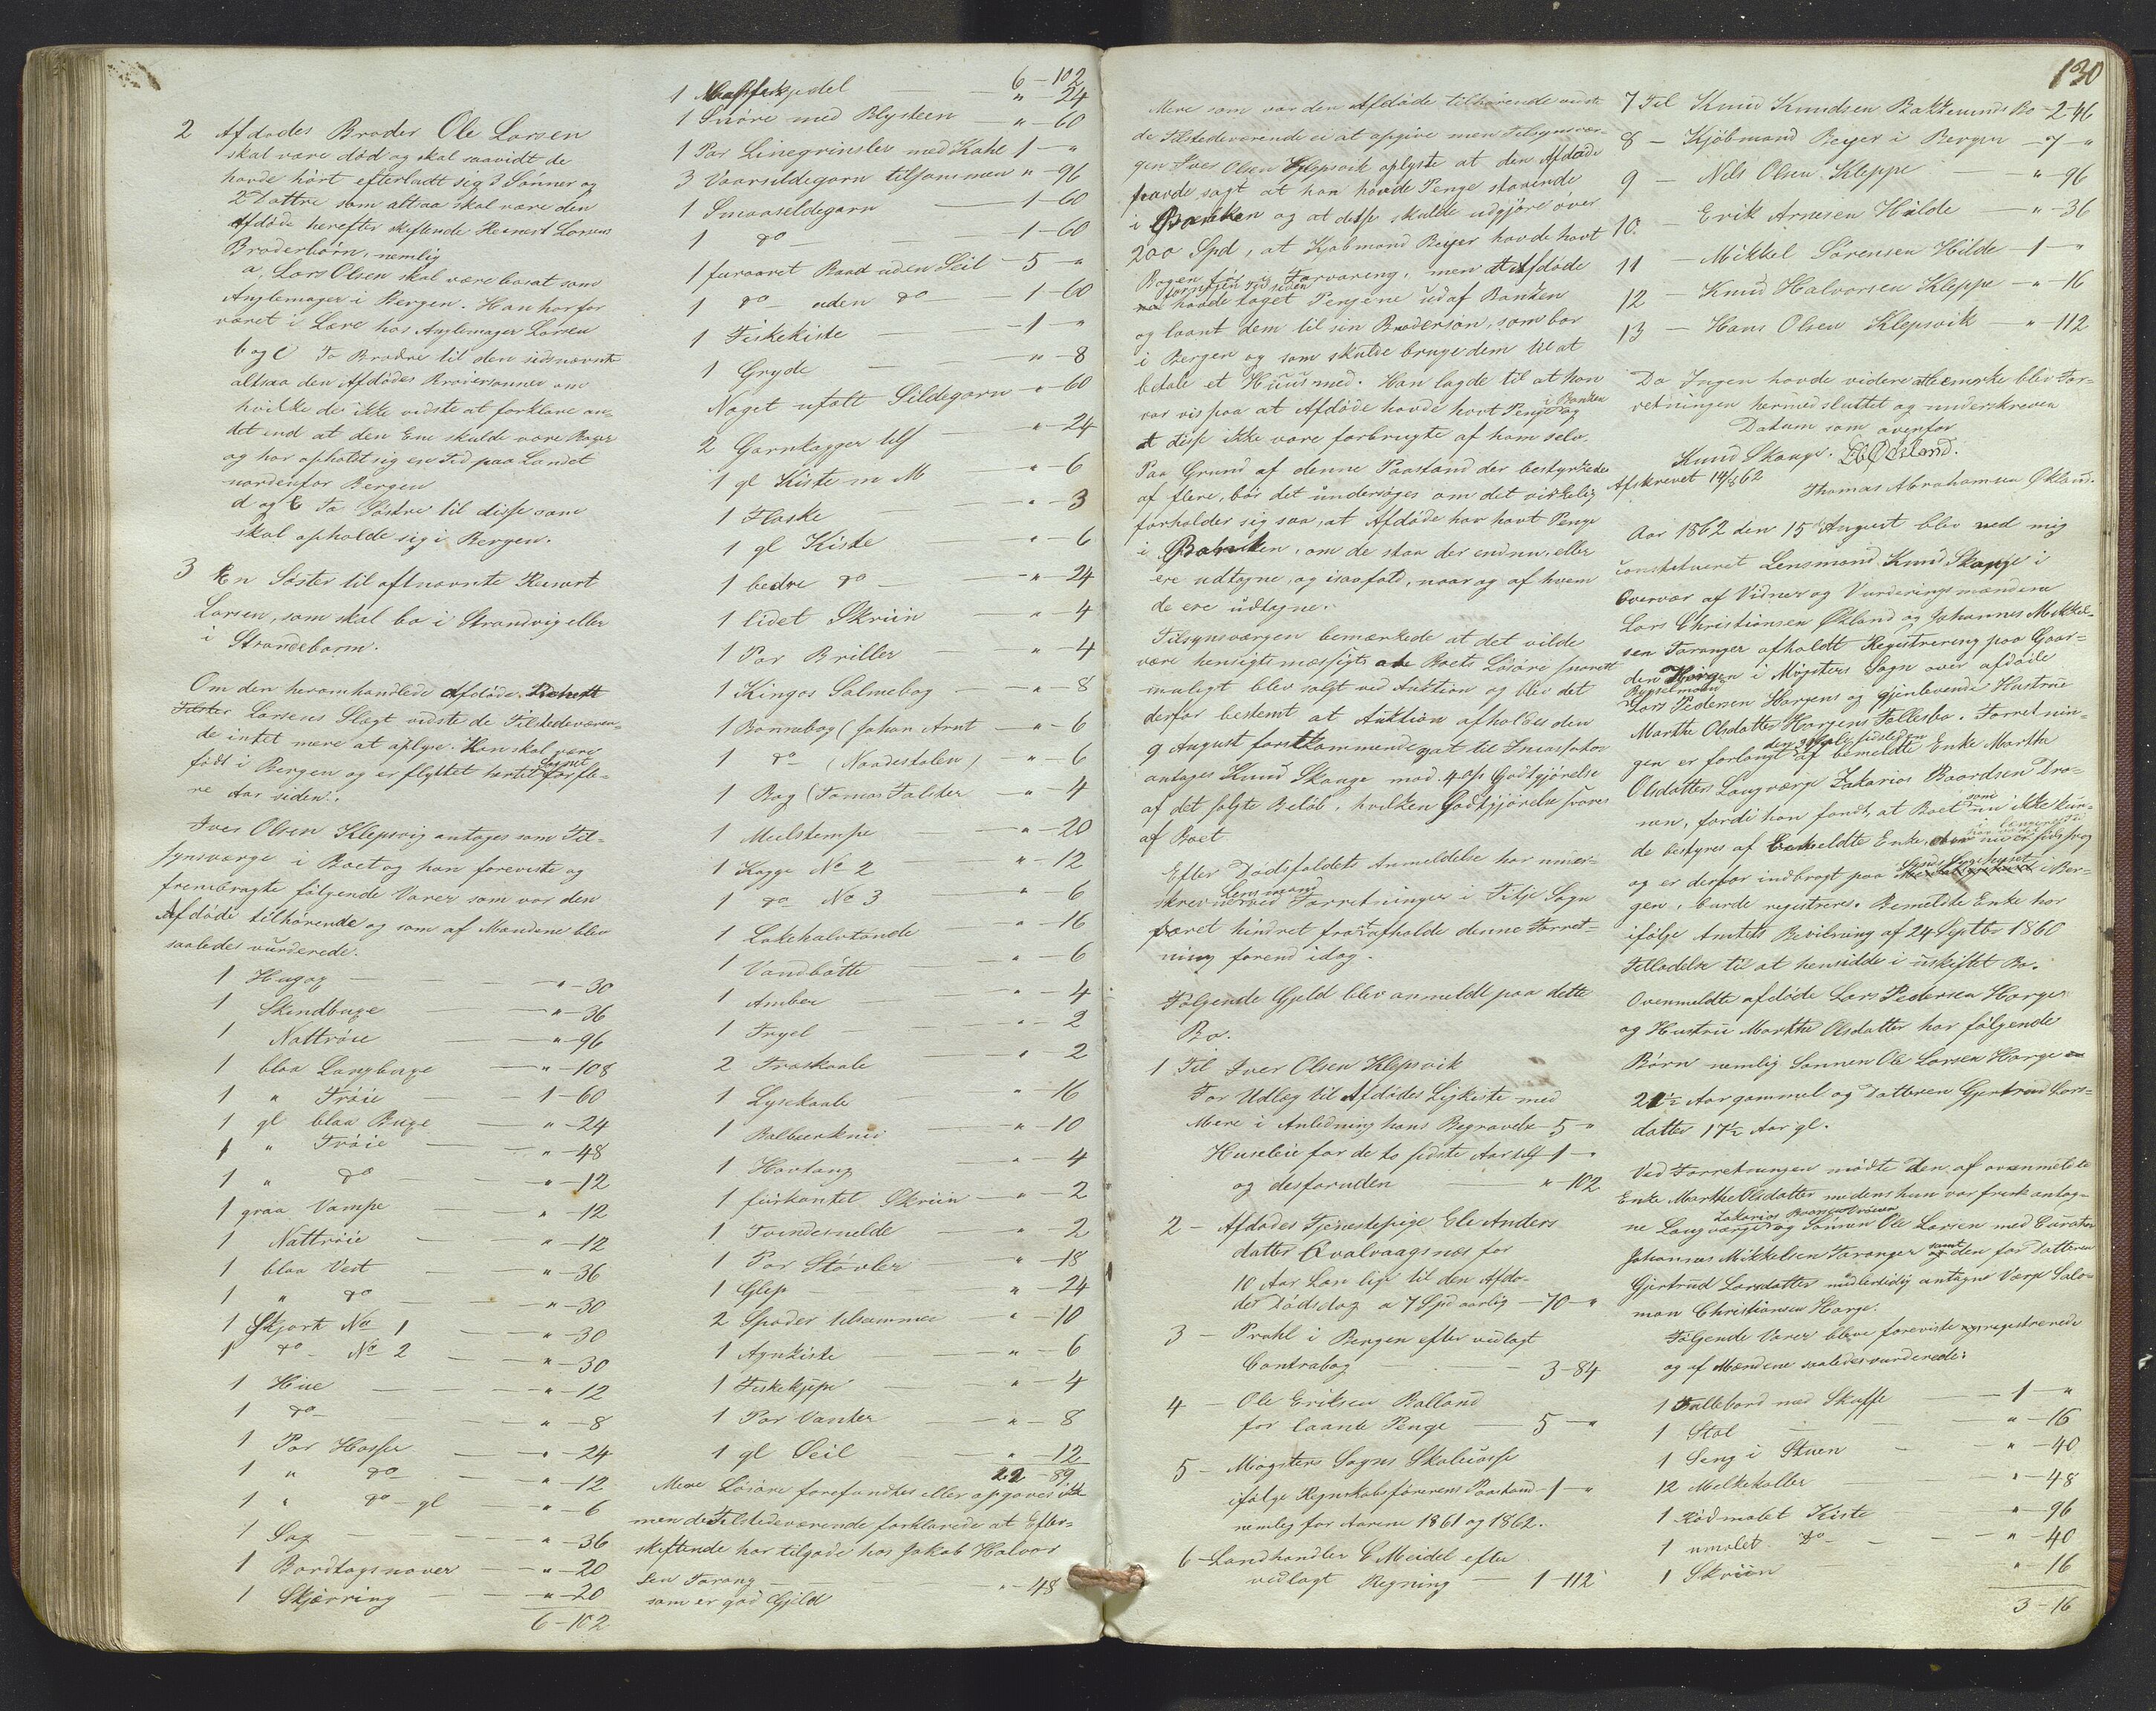 2 Afdødes Broder Ole Larsen
skal være død og skal saavidt de
havde hørt efterladt sig 3 Sønner og
2 Døttre som altsaa skal være den
Afdøde herefter skiftende Larsens
Broderbørn, nemlig
a, Lars Olsen skal være bosat som
Anglemager i Bergen. Han har før
været i Lære hos Anglemager Larsen
b og c To Brødre til den sidsnævnte
altsaa den Afdødes Brodersønner om
hvilke de ikke vidste at forklare an-
det end at den Ene skulde være Bager
og har opholdt sig en Tid paa Landet
nordenfor Bergen
d og e To Søstre til disse som
skal opholde sig i Bergen.
3 En Søster til oftnævnte
Larsen, som skal bo i Strandvig eller
i Strandebarm.
Om den heromhandlede Afdøde
Larsens Slægt vidste de Tilstedeværen-
de intet mere at oplyse. Han skal være
født i Bergen og er flyttet hertil Sognet for fle-
re Aar siden.
Iver Olsen Klepsvig antages som Til-
synsværge i Boet og han foreviste og
frembragte følgende Varer som var den
Afdøde tilhørende og som af Mændene blev
saaledes vurderede.
1 — " — 30
1 Skindbuxe — " — 36
1 Nattrøie — " — 96
1 blaa Langbuxe — " — 108
1 " Trøie — 1 — 60
1 gl blaa Buxe — " — 24
1 " Trøie — " — 48
1 " do — " — 12
1 graa Vampe — " — 12
1 Nattrøie — " — 12
1 blaa Vest — " — 36
1 " do — " — 30
1 Skjorte No 1 — " — 30
1 do No 2 — " — 30
1 Hue — " — 12
1 do — " — 8
1 Par Hosser — " — 24
1 " do — " — 12
1 " do gl — " — 6
1 Sag — " — 36
1 Bordtagsnaver — " — 20
1 Skjærring — " — 20
6 — 102
6 — 102
1 — " — 24
1 Snøre med Blysteen — " — 60
1 Par Linegrinsler med Kabl 1 — "
3 Vaarsildegarn tilsammen " — 96
1 Smaasildegarn — 1 — 60
1 do — 1 — 60
1 furaaret Baad uden Seil — 5 — "
1 do uden do — 1 — 60
1 Fiskekiste — 1 — "
1 Gryde — " — 8
Noget ufält Sildegarn " — 60
2 Garnkagger tils — " — 24
1 gl Kiste m M — " — 6
1 Flaske — " — 3
1 gl Kiste — " — 6
1 bedre do — " — 24
1 lidet Skriin — " — 4
1 Par Briller — " — 4
1 Kingos Salmebog — " — 8
1 Bønnebog (Johan Arnt — " — 6
1 do (Naadestolen) — " — 6
1 Bog (Tomas — " — 4
1 Meelstampe — " — 20
1 Kagge No 2 — " — 12
1 do No 3 — " — 6
1 Lakehalvtønde — " — 16
1 Vandbøtte — " — 6
1 Amber — " — 4
1 Trygel — " — 2
2 Træskaale — " — 2
1 Lysekaale — " — 16
1 Balbeerkniv — " — 10
1 Havtang — " — 4
1 fiirkantet Skriin — " — 2
1 — " — 2
1 Par Støvler — " — 18
1 Glep — " — 24
2 Spader tilsammen — " — 10
1 Agnkiste — " — 6
1 Fiskekjipe — " — 4
1 Par Vanter — " — 8
1 gl Seil — " — 12
22 — 89
Mere Løsøre forefandtes eller opgaves ikke
men de Tilstedeværende forklarede at Efter-
skiftende har tilgode hos Jakob Halvor
sen Tarang
som er god Gjeld " — 48
130
Mere som var den Afdøde tilhørende vidste
de Tilstedeværende ei at opgive men Tilsynsvær-
gen Iver Olsen Klepsvik oplyste at den Afdøde
havde sagt at han havde Penge staaende
i Banken og at disse skulde udgjøre over
200 Spd, at Kjøbmand Beyer havde havt
Bogen for sig Forvaring, men at Afdøde
for nogen Tid siden
havde taget Pengene ud af Banken
og laant dem til sin Brodersøn, som bor
i Bergen og som skulde bruge dem til at
betale et Huus med. Han lagde til at han
var vis paa at Afdøde havde havt Penge i Banken og
at disse ikke vare forbrugte af ham selv.
Paa Grund af denne Paastand der bestyrkedes
af flere, bør det undersøges om det virkelig
forholder sig saa, at Afdøde har havt Penge
i Banken, om de staa der endnu, eller
ere udtagne, og isaafald, naar og af hvem
de ere udtagne.
Tilsynsværgen bemærkede at det vilde
være hensigtsmæssigt at Boets Løsøre snarest
muligt blev solgt ved Auktion og blev det
derfor bestemt at Auktion afholdes den
9 August førstkommende og at til Incassator
antages Knud Skaage mod 4 op Godtgjørelse
af det solgte Beløb, hvilken Godtgjørelse svares
af Boet
Efter Dødsfaldets Anmeldelse har under-
skrevne Lensmand ved Forretninger i Fitje Sogn
været hindret fra at afholde denne Forret-
ning førend idag.
Følgende Gjeld blev anmeldt paa dette
Bo.
1 Til Iver Olsen Klepsvik
For Udlæg til Afdødes Ligkiste med
Mere i Anledning hans Begravelse — 5 — "
Huusleie for de to sidste Aar tils — 1 — "
og desforuden — " — 102
2 — Afdødes Tjenestepige Eli Anders
datter Qvalvaagsnæs for
10 Aar Løn lige til den Afdø-
des Dødsdag a 7 Spd aarlig — 70 — "
3 — Prahl i Bergen efter vedlagt
Contrabog — 3 — 84
4 — Ole Eriksen Balland
for laante Penge — 5 — "
5 — Møgsters Sogns Skolecasse
ifølge Regnskabsførerens Paastand — 1 — "
nemlig for Aarene 1861 og 1862.
6 — Landhandler C Meidel efter
vedlagt Regning — 1 — 112
7 Til Knud Knudsen Bakkesunds Bo — 2 — 46
8 — Kjøbmand Beyer i Bergen — 7 — "
9 — Nils Olsen Kleppe — " — 96
10. Erik Arnesen Hilde — " — 36
11 — Mikkel Sørensen Hilde — 1 — "
12 — Knud Halvorsen Kleppe — " — 16
13 — Hans Olsen Klepsvik — " — 112
Da Ingen havde videre at bemærke blev For-
retningen hermed sluttet og underskreven
Datum som ovenfor
Knud Skaage. Østland.
Afskrevet 14/8 62 Thomas Abrahamsen Økland.
Aar 1862 den 15 August blev ved mig
constitueret Lensmand Knud Skaage i
Overvær af Vidner og Vurderingsmændene
Lars Christiansen Økland og Johannes Mikkel-
sen Taranger afholdt Registrering paa Gaar-
den Horgen i Møgsters Sogn over afdøde
Bygselmand
Lars Pedersen Horgens og gjenlevende Hustrue
Marthe Olsdatter Horgens Fællesbo. Forretnin-
gen er forlangt den af bemeldte Enke Marthe
Olsdatters Laugværge Zakarias Baardsen Drø-
nen, fordi han fandt, at Boet som nu ikke kun-
de bestyres af bemeldte Enke,
og er derfor indbragt paa i Ber-
gen, burde registreres. Bemeldte Enke har
ifølge Amtets Bevilgning af 24 Septbr 1860
Tilladelse til at hensidde i uskiftet Bo.
Ovenmeldte afdøde Lars Pedersen Horgen
og Hustrue Marthe Olsdatter har følgende
Børn nemlig Sønnen Ole Larsen Horge
21½ Aar gammel og Datteren Gjertrud Lars-
datter 17½ Aar gl.
Ved Forretningen mødte den af ovenmeldte
Enke Marthe Olsdatter medens hun var frisk antag-
ne Laugværge Zakarias Baardsen Drønen og Sønnen Ole Larsen med Curator
Johannes Mikkelsen Taranger samt den for Datteren
Gjertrud Larsdatter midlertidig antagne Værge Salo-
mon Christiansen Horge.
Følgende Varer bleve foreviste og registrerede
og af Mændene saaledes vurderede:
1 Fallebord med Skuffe — 1 — "
1 Stol — " — 16
1 Seng i Stuen — " — 40
12 Melkekoller — " — 48
1 Rødmalet Kiste — " — 96
1 umalet do — " — 40
1 Skriin — " — 16
3 — 16